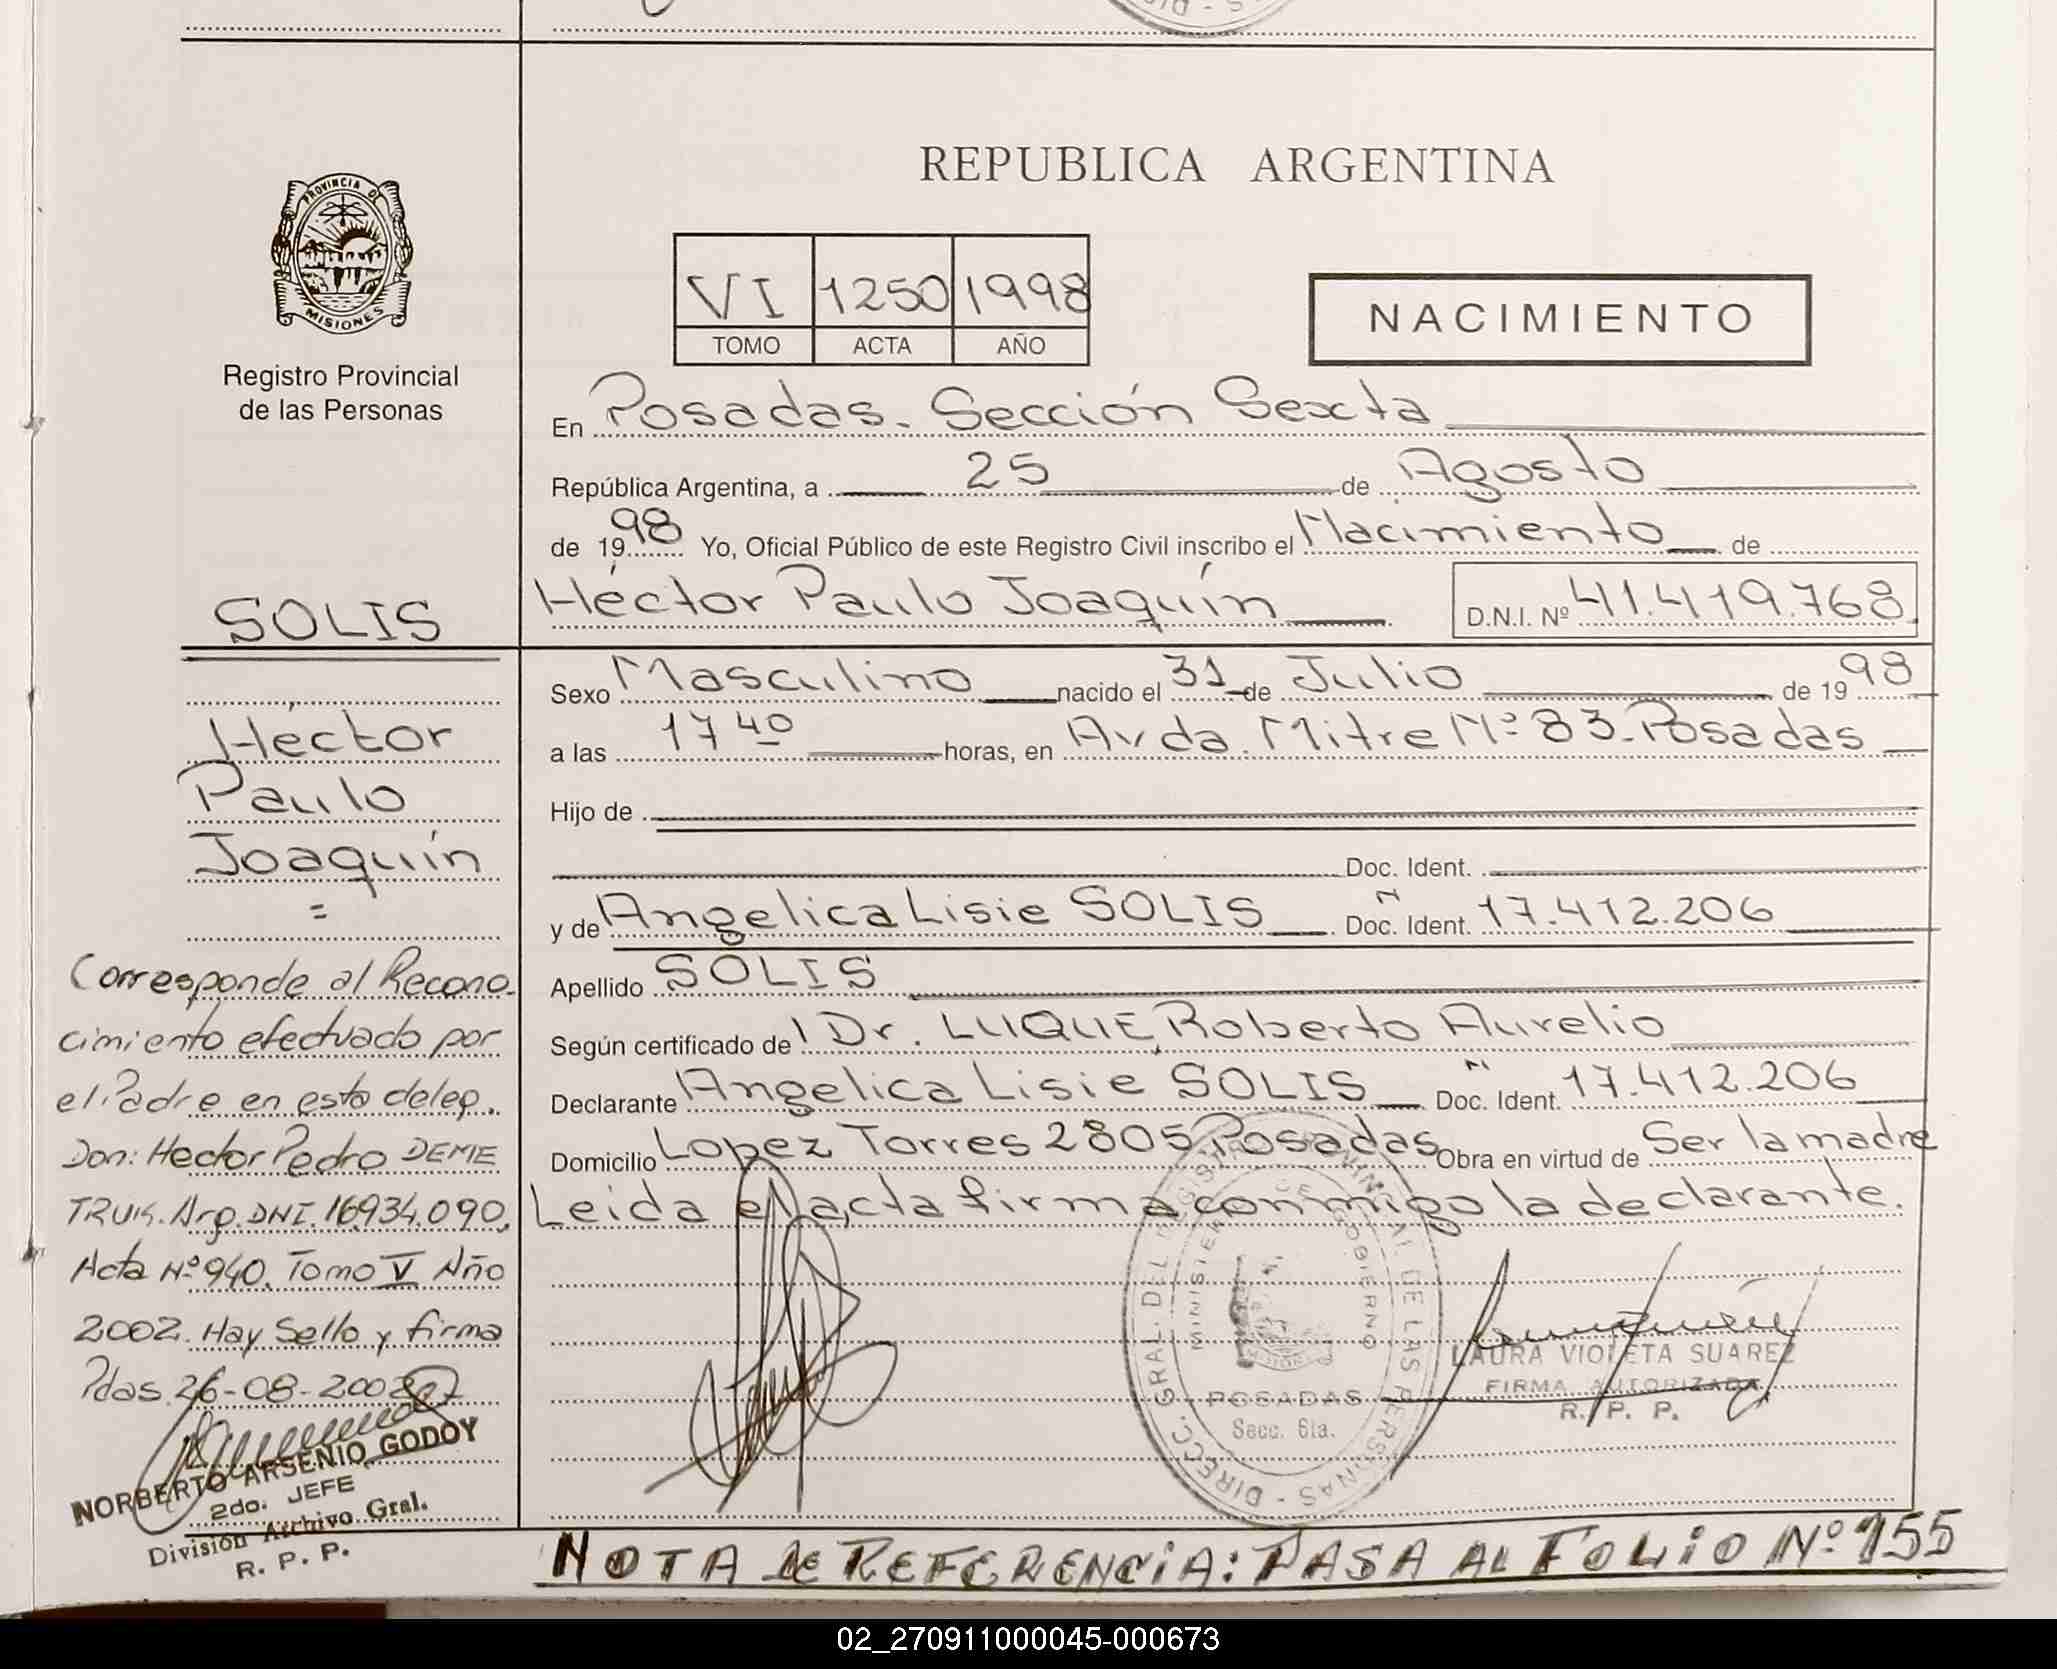 REPUBLICA ARGENTINA
PROVINCIA DE
MISIONES
Registro Provincial
de las Personas
VI 1250 1998
TOMO ACTA AÑO
NACIMIENTO
En Posadas. Sección Sexta
República Argentina, a 25 de Agosto
de 1998 Yo, Oficial Público de este Registro Civil inscribo el Nacimiento de
Héctor Paulo Joaquín D.N.I. Nº 41.419.768
SOLIS
Héctor
Paulo
Joaquín
=
Sexo Masculino nacido el 31 de Julio de 1998
a las 17 40 horas, en Avda. Mitre Nº 83. Posadas
Hijo de
Doc. Ident.
y de Angelica Lisie SOLIS Doc. Ident. 17.412.206
Apellido SOLIS
Según certificado del Dr. LUQUE, Roberto Aurelio
Declarante Angelica Lisie SOLIS Doc. Ident. 17.412.206
Domicilio Lopez Torres 2805 Posadas Obra en virtud de Ser la madre
Leida el acta firma conmigo la declarante.
Corresponde al Recono-
cimiento efectuado por
el Padre en esta deleg.
Don: Hector Pedro DEME
TRUK. Arg. DNI. 16934.090,
Acta Nº 940. Tomo V Año
2002. Hay Sello y firma
Pdas. 26-08-2002
NORBERTO ARSENIO GODOY
2do. JEFE
División Archivo Gral.
R. P. P.
DIRECC. GRAL. DEL REGISTRO PROVINCIAL DE LAS PERSONAS
MINISTERIO DE GOBIERNO
MISIONES
POSADAS
Secc. 6ta.
LAURA VIOLETA SUAREZ
FIRMA AUTORIZADA
R. P. P.
NOTA de REFERENCIA: PASA AL FOLIO Nº 155
02_270911000045-000673